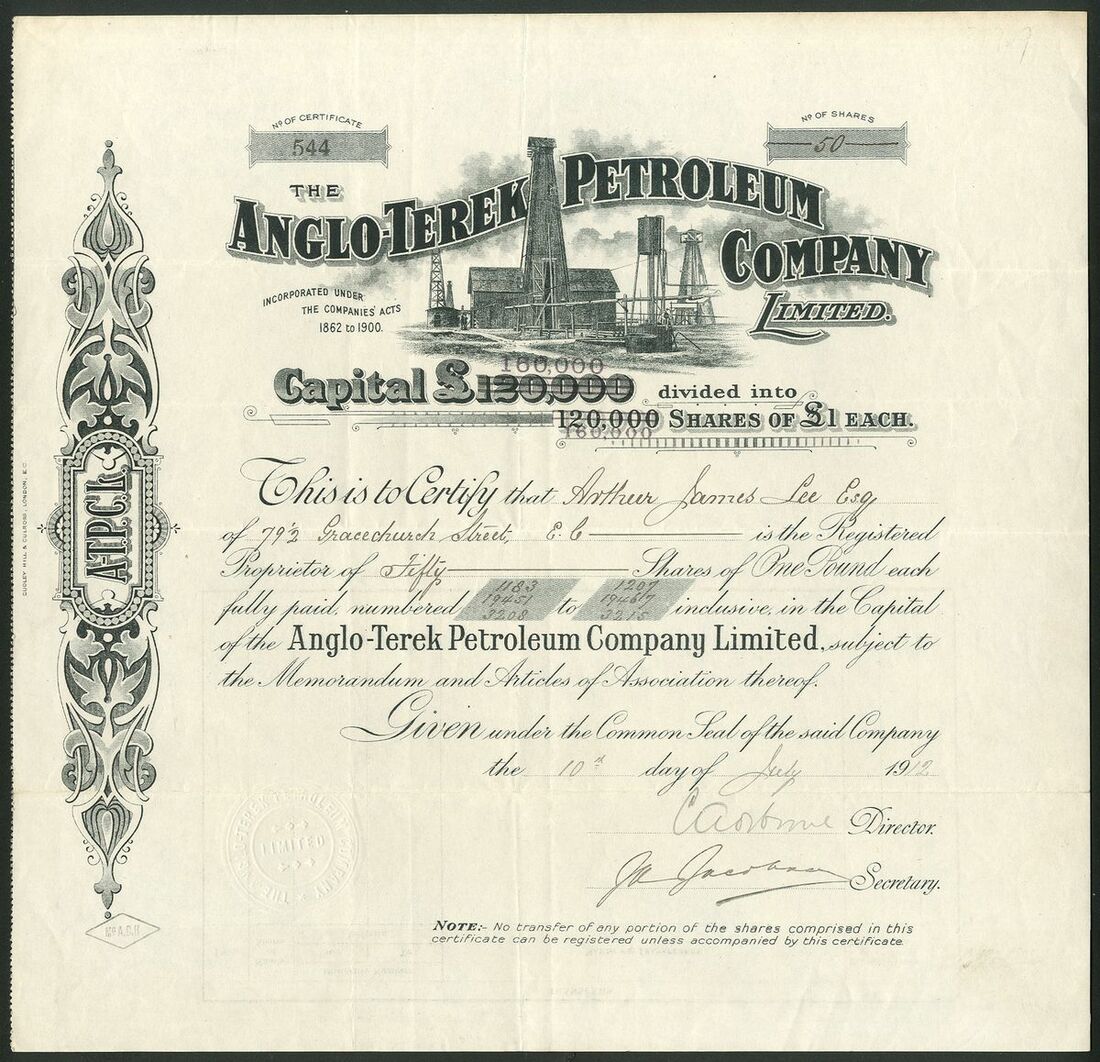 Nº OF CERTIFICATE
544
Nº OF SHARES
50
THE
ANGLO-TEREK PETROLEUM
COMPANY
LIMITED.
INCORPORATED UNDER
THE COMPANIES' ACTS
1862 to 1900.
160,000
Capital £120,000 divided into
120,000 SHARES OF £1 EACH.
160,000
This is to Certify that Arthur James Lee Esq
of 79½ Gracechurch Street, E.C is the Registered
Proprietor of Fifty Shares of One Pound each
1183 1207
fully paid, numbered 19451 to 19467 inclusive, in the Capital
3208 3215
of the Anglo-Terek Petroleum Company Limited, subject to
the Memorandum and Articles of Association thereof.
Given under the Common Seal of the said Company
the 10th day of July 1912
Director.
Secretary.
NOTE:- No transfer of any portion of the shares comprised in this
certificate can be registered unless accompanied by this certificate.
A.T.P.C.L.
LONDON, E.C.
THE ANGLO-TEREK PETROLEUM COMPANY
LIMITED